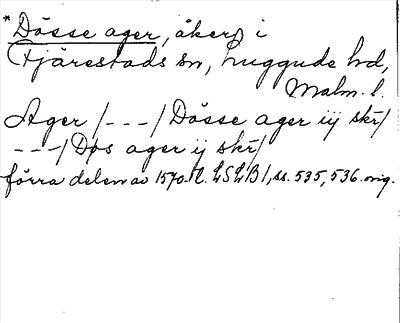 *Dösse ager, åker, i
Fjärestads sn, Luggude hd,
Malm. l.
Ager /---/ Dösse ager iij skr/
---/ Døs ager ij skr/
förra delen av 1570-t. LSLB 1, ss. 535, 536. orig.